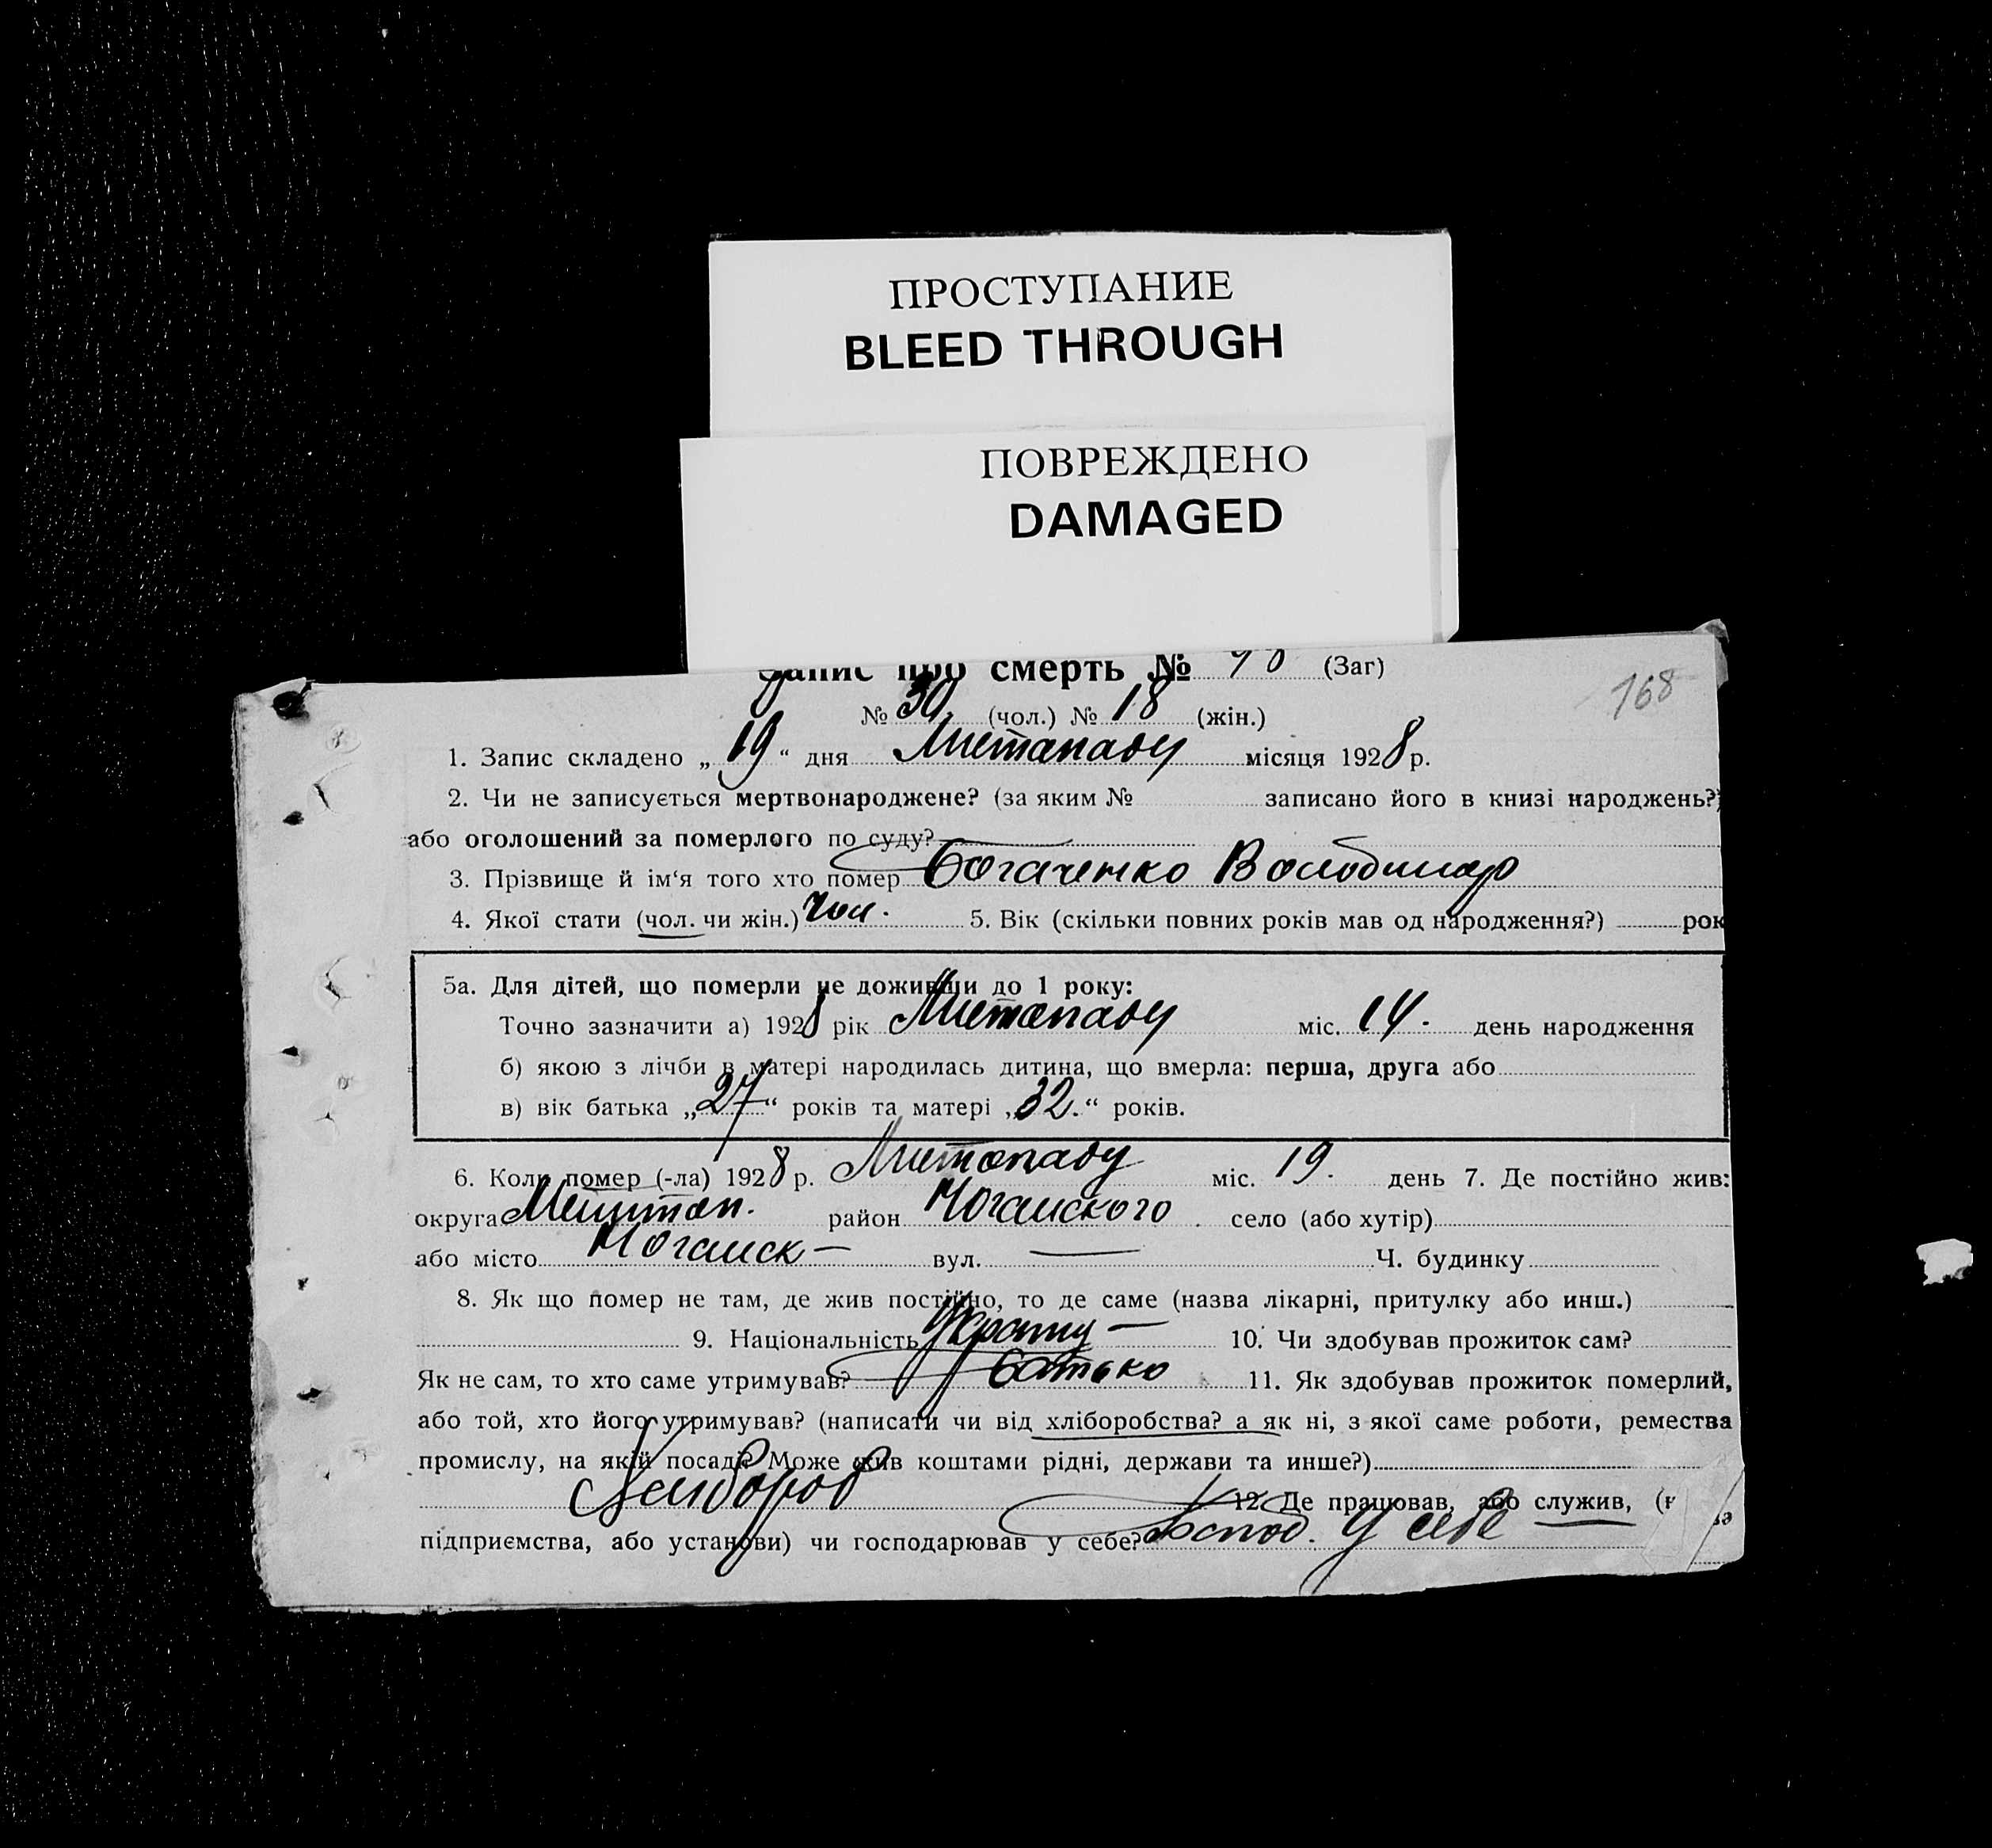 ПРОСТУПАНИЕ
BLEED THROUGH
ПОВРЕЖДЕНО
DAMAGED
Запис про смерть № (Заг)
168
№ 30 (чол.) № 18 (жін.)
1. Запис складено „ 19 “ дня Листопаду місяця 1928 р.
2. Чи не записується мертвонароджене? (за яким № записано його в книзі народжень?)
або оголошений за померлого по суду?
3. Прізвище й ім‘я того хто помер Богаченко Володимир
4. Якої стати (чол. чи жін.) чол. 5. Вік (скільки повних років мав од народження?) рок
5а. Для дітей, що померли не доживши до 1 року:
Точно зазначити а) 1928 рік Листопаду міс. 14. день народження
б) якою з лічби в матері народилась дитина, що вмерла: перша, друга або
в) вік батька „27“ років та матері „32.“ років.
6. Коли помер (-ла) 1928 р. Листопаду міс. 19. день 7. Де постійно жив:
округа Мелитоп. район Ногайского село (або хутір)
або місто Ногайск — вул. — Ч. будинку
8. Як що помер не там, де жив постійно, то де саме (назва лікарні, притулку або инш.)
9. Національність 10. Чи здобував прожиток сам?
Як не сам, то хто саме утримував? батько 11. Як здобував прожиток померлий,
або той, хто його утримував? (написати чи від хліборобства? а як ні, з якої саме роботи, ремества
промислу, на якій посаді? Може жив коштами рідні, держави та инше?)
Хлібороб 12. Де працював, або служив,
підприємства, або установи) чи господарював у себе? Господ. у себе